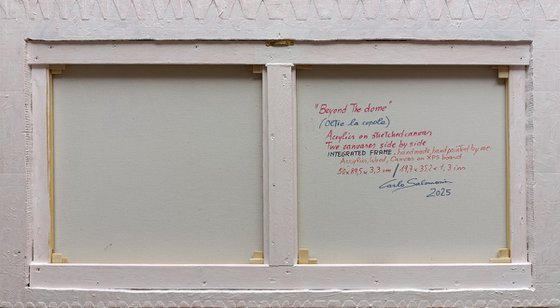 "Beyond The dome"
(Oltre la cupola)
Acrylics on stretched canvas
Two canvases side by side
INTEGRATED FRAME. handmade, hand painted by me
Acrylics, Wood, Canvas on XPS board
50x89,5x3,3 cm / 19,7x35,2x1,3 in
Carlo Salomoni
2025